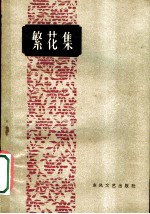 繁花集
东风文艺出版社